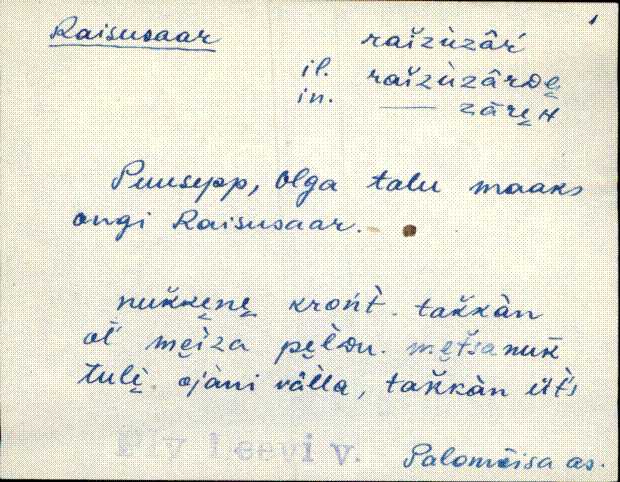 1
Raisusaar raĭzùzâŕ
il. raĭzùzârDe̮
in. —— zāre̮H
Puusepp, Olga talu maaks
ongi Raisusaar.
nuk̆k̆e̮ne̮ krońt̀. tak̆k̆àn
ol̀ me̮ìza pe̮l̀Du. me̮t̆sa nuk̆
tulì. ojàni vâl̀la, tak̆k̆àn üt̀s
Leevi v.
Palomõisa as.